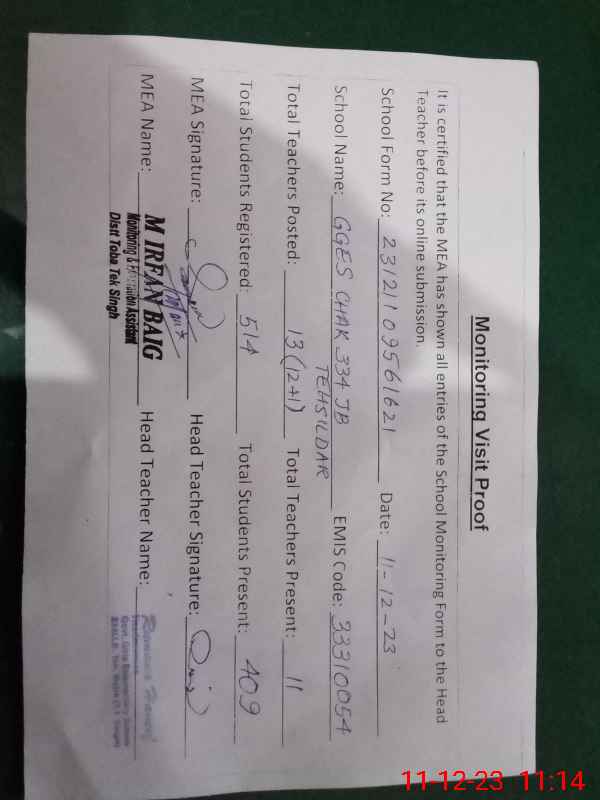 Monitoring Visit Proof
It is certified that the MEA has shown all entries of the School Monitoring Form to the Head
Teacher before its online submission.
School Form No: 23121109561621 Date: 11-12-23
School Name: GGES CHAK 334 JB EMIS Code: 33310054
TEHSILDAR
Total Teachers Posted: 13(12+1) Total Teachers Present: 11
Total Students Registered: 514 Total Students Present: 409
MEA Signature: Head Teacher Signature:
MEA Name: M IRFAN BAIG Head Teacher Name:
Monitoring & Evaluation Assistant
Distt Toba Tek Singh
Headmistress
Govt. Girls Elementary School
11-12-23 11:14